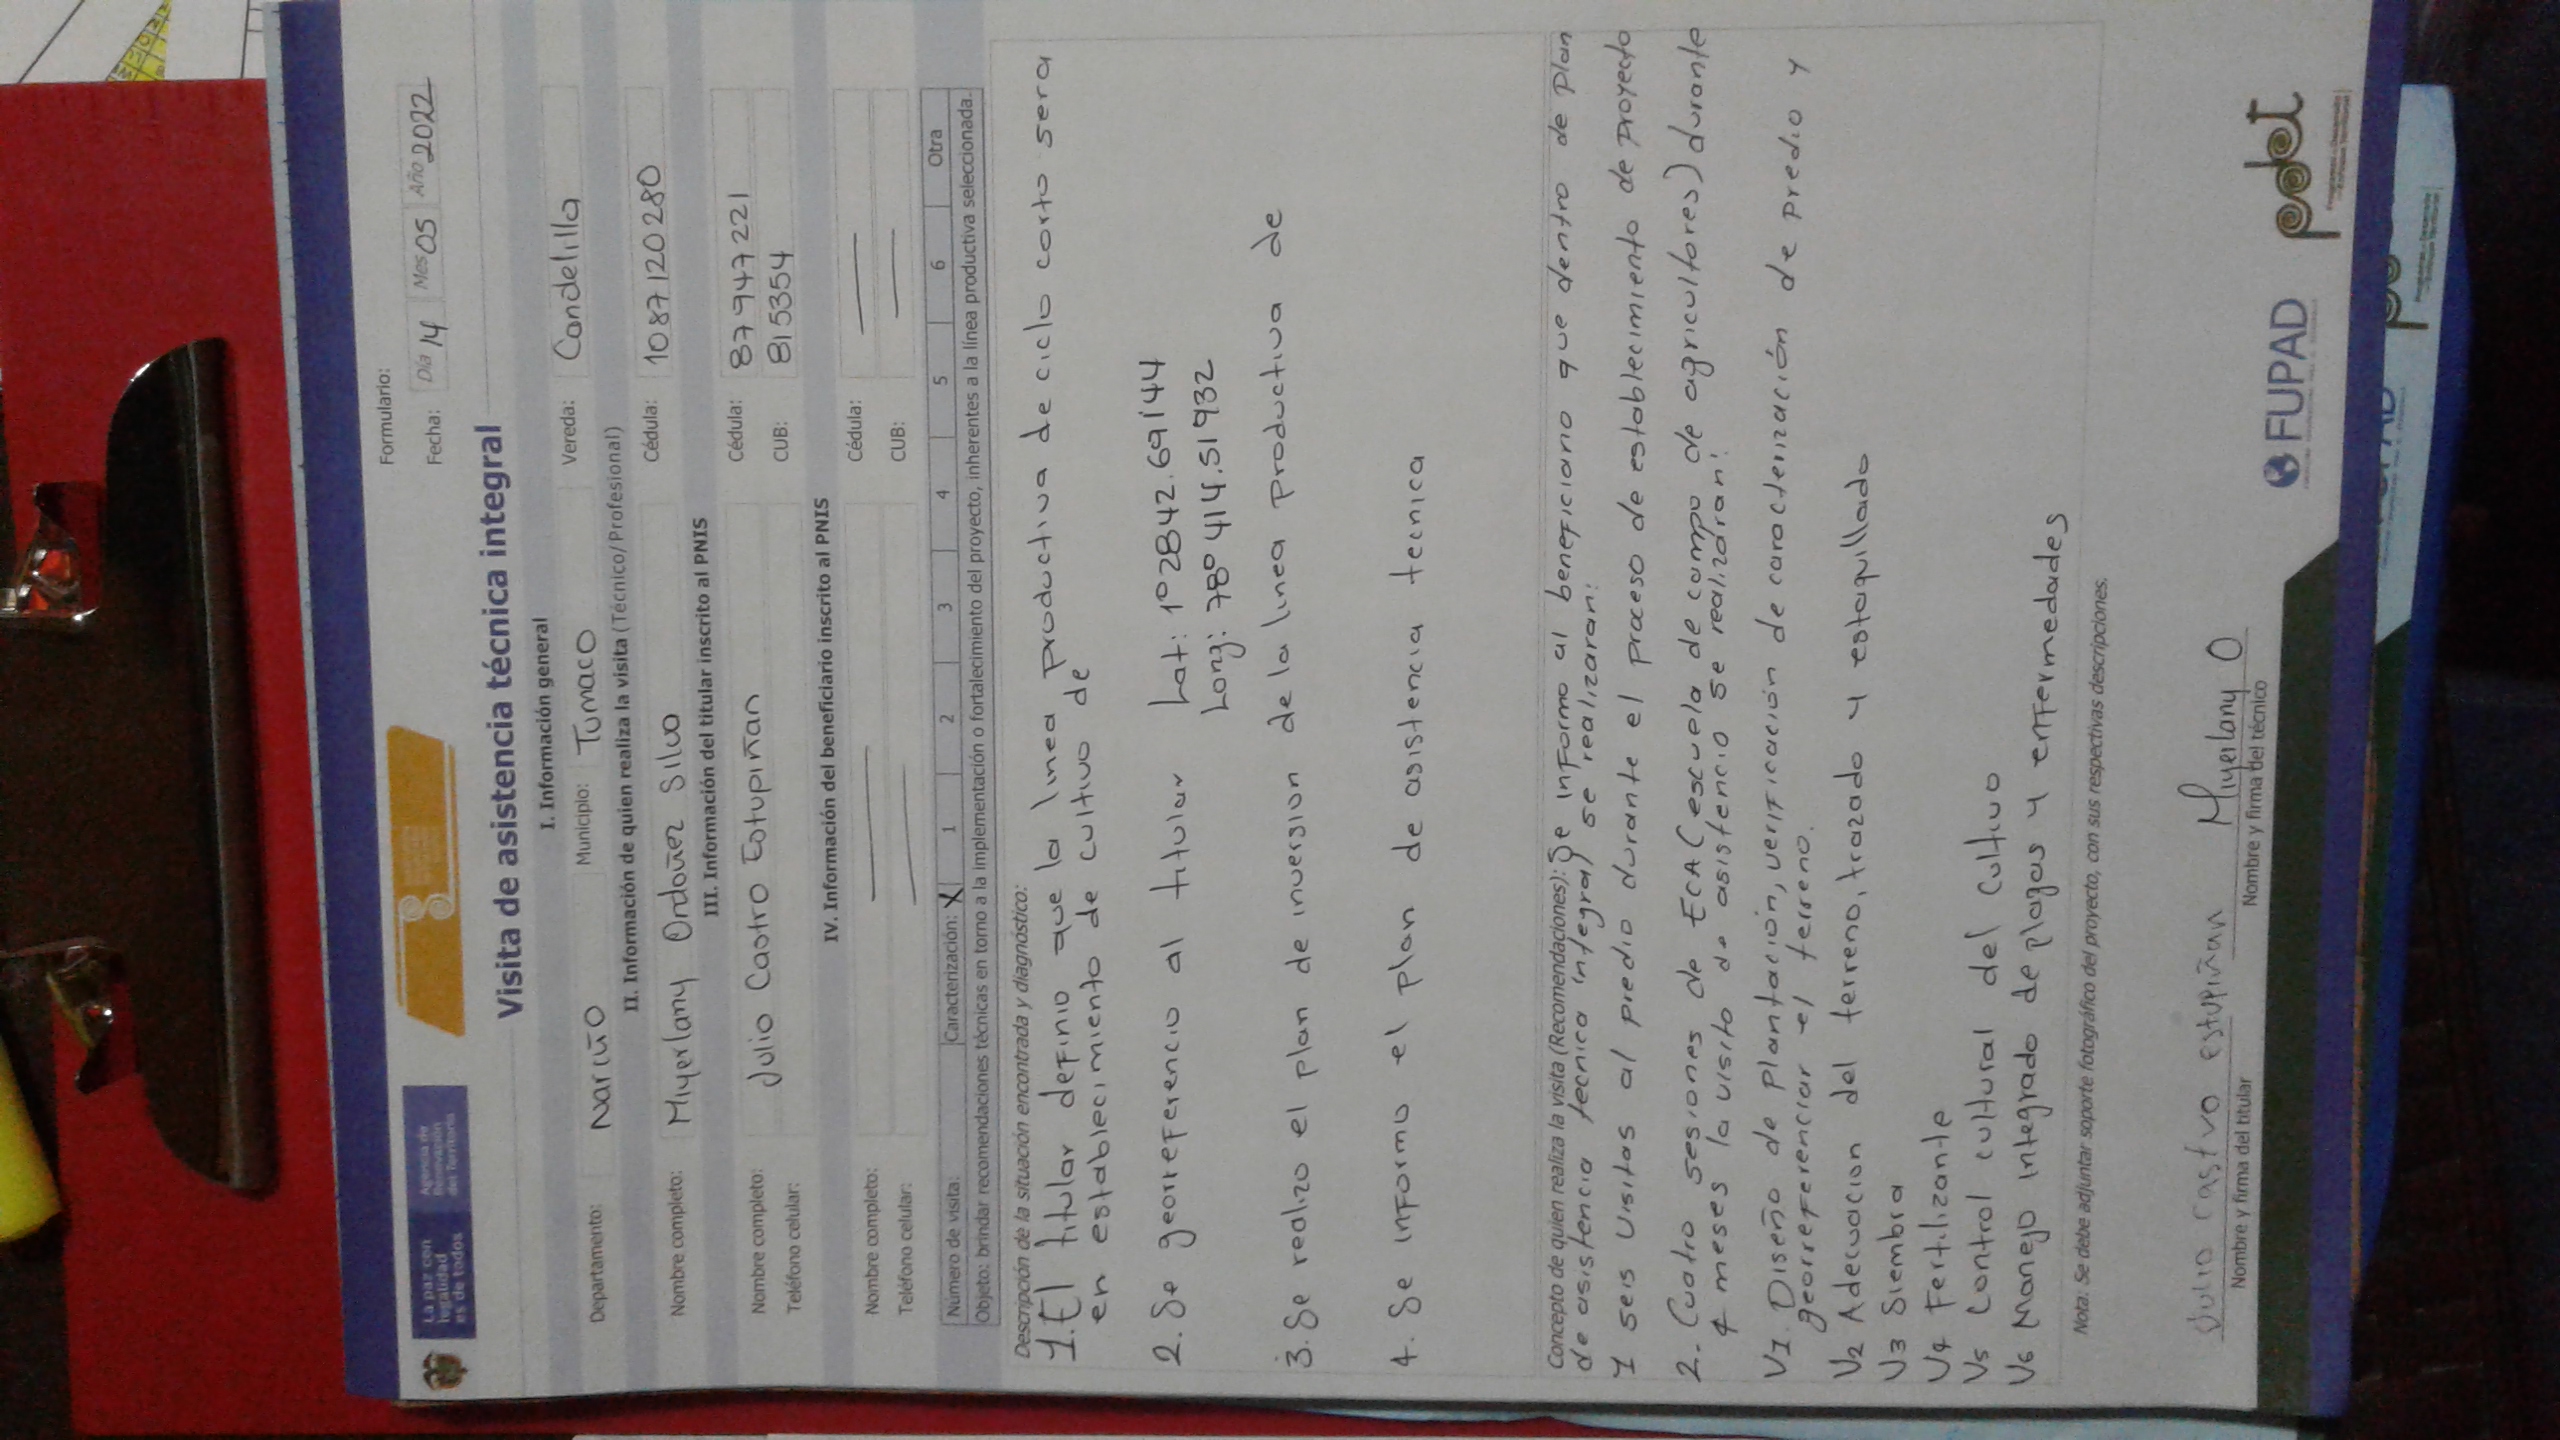 La paz con
legalidad
es de todos
Agencia de
Renovación
del Territorio
Formulario:
Fecha: Día 14 Mes 05 Año 2022
Visita de asistencia técnica integral
I. Información general
Departamento: Nariño Municipio: Tumaco Vereda: Candelilla
II. Información de quien realiza la visita (Técnico/Profesional)
Nombre completo: Miyerlany Ordoñez Silva Cédula: 1087120280
III. Información del titular inscrito al PNIS
Nombre completo: Julio Castro Estupiñan Cédula: 87947221
Teléfono celular: CUB: 815354
IV. Información del beneficiario inscrito al PNIS
Nombre completo: Cédula:
Teléfono celular: CUB:
Número de visita: Caracterización: X 1 2 3 4 5 6 Otra
Objeto: brindar recomendaciones técnicas en torno a la implementación o fortalecimiento del proyecto, inherentes a la línea productiva seleccionada.
Descripción de la situación encontrada y diagnóstico:
1. El titular definio que la linea productiva de ciclo corto sera
en establecimiento de cultivo de
2. Se georreferencio al titular Lat: 1º2842.69144
Long: 78º414.51932
3. Se realizo el plan de inversion de la linea productiva de
4. Se informo el plan de asistencia tecnica
Concepto de quien realiza la visita (Recomendaciones): Se informo al beneficiario que dentro de plan
de asistencia tecnica integral se realizaran:
1 seis visitas al predio durante el proceso de establecimiento de proyecto
2. Cuatro sesiones de ECA (escuela de campo de agricultores) durante
4 meses la visita de asistencia se realizaran:
V1. Diseño de plantación, verificación de caracterización de predio y
georreferenciar el terreno.
V2 Adecuacion del terreno, trazado y estaquillado
V3 Siembra
V4 Fertilizante
V5 Control cultural del cultivo
V6 Manejo integrado de plagas y enfermedades
Nota. Se debe adjuntar soporte fotográfico del proyecto, con sus respectivas descripciones.
Julio castro estupiñan Miyerlany O
Nombre y firma del titular Nombre y firma del técnico
FUPAD
pdet